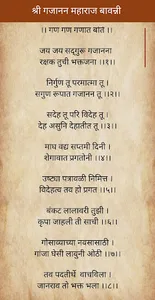 श्री गजानन महाराज बावन्नी
।। गण गण गणात बोते ।।
जय जय सद्गुरू गजानना
रक्षक तुची भक्तजना ।।१।।
निर्गुण तू परमात्मा तू ।
सगुण रूपात गजानन तू ।।२।।
सदेह तू परि विदेह तू ।
देह असुनि देहातीत तू ।।३।।
माघ वद्य सप्तमी दिनी ।
शेगावात प्रगटोनी ।।४।।
उष्ट्या पत्रावळी निमित्त ।
विदेहत्व तव हो प्रगट ।।५।।
बंकट लालावरी तुझी ।
कृपा जाहली ती साची ।।६।।
गोसाव्याच्या नवसासाठी ।
गांजा घेसी लावुनी ओठी ।।७।।
तव पदतीर्थे वाचविला ।
जानराव तो भक्त भला ।।८।।